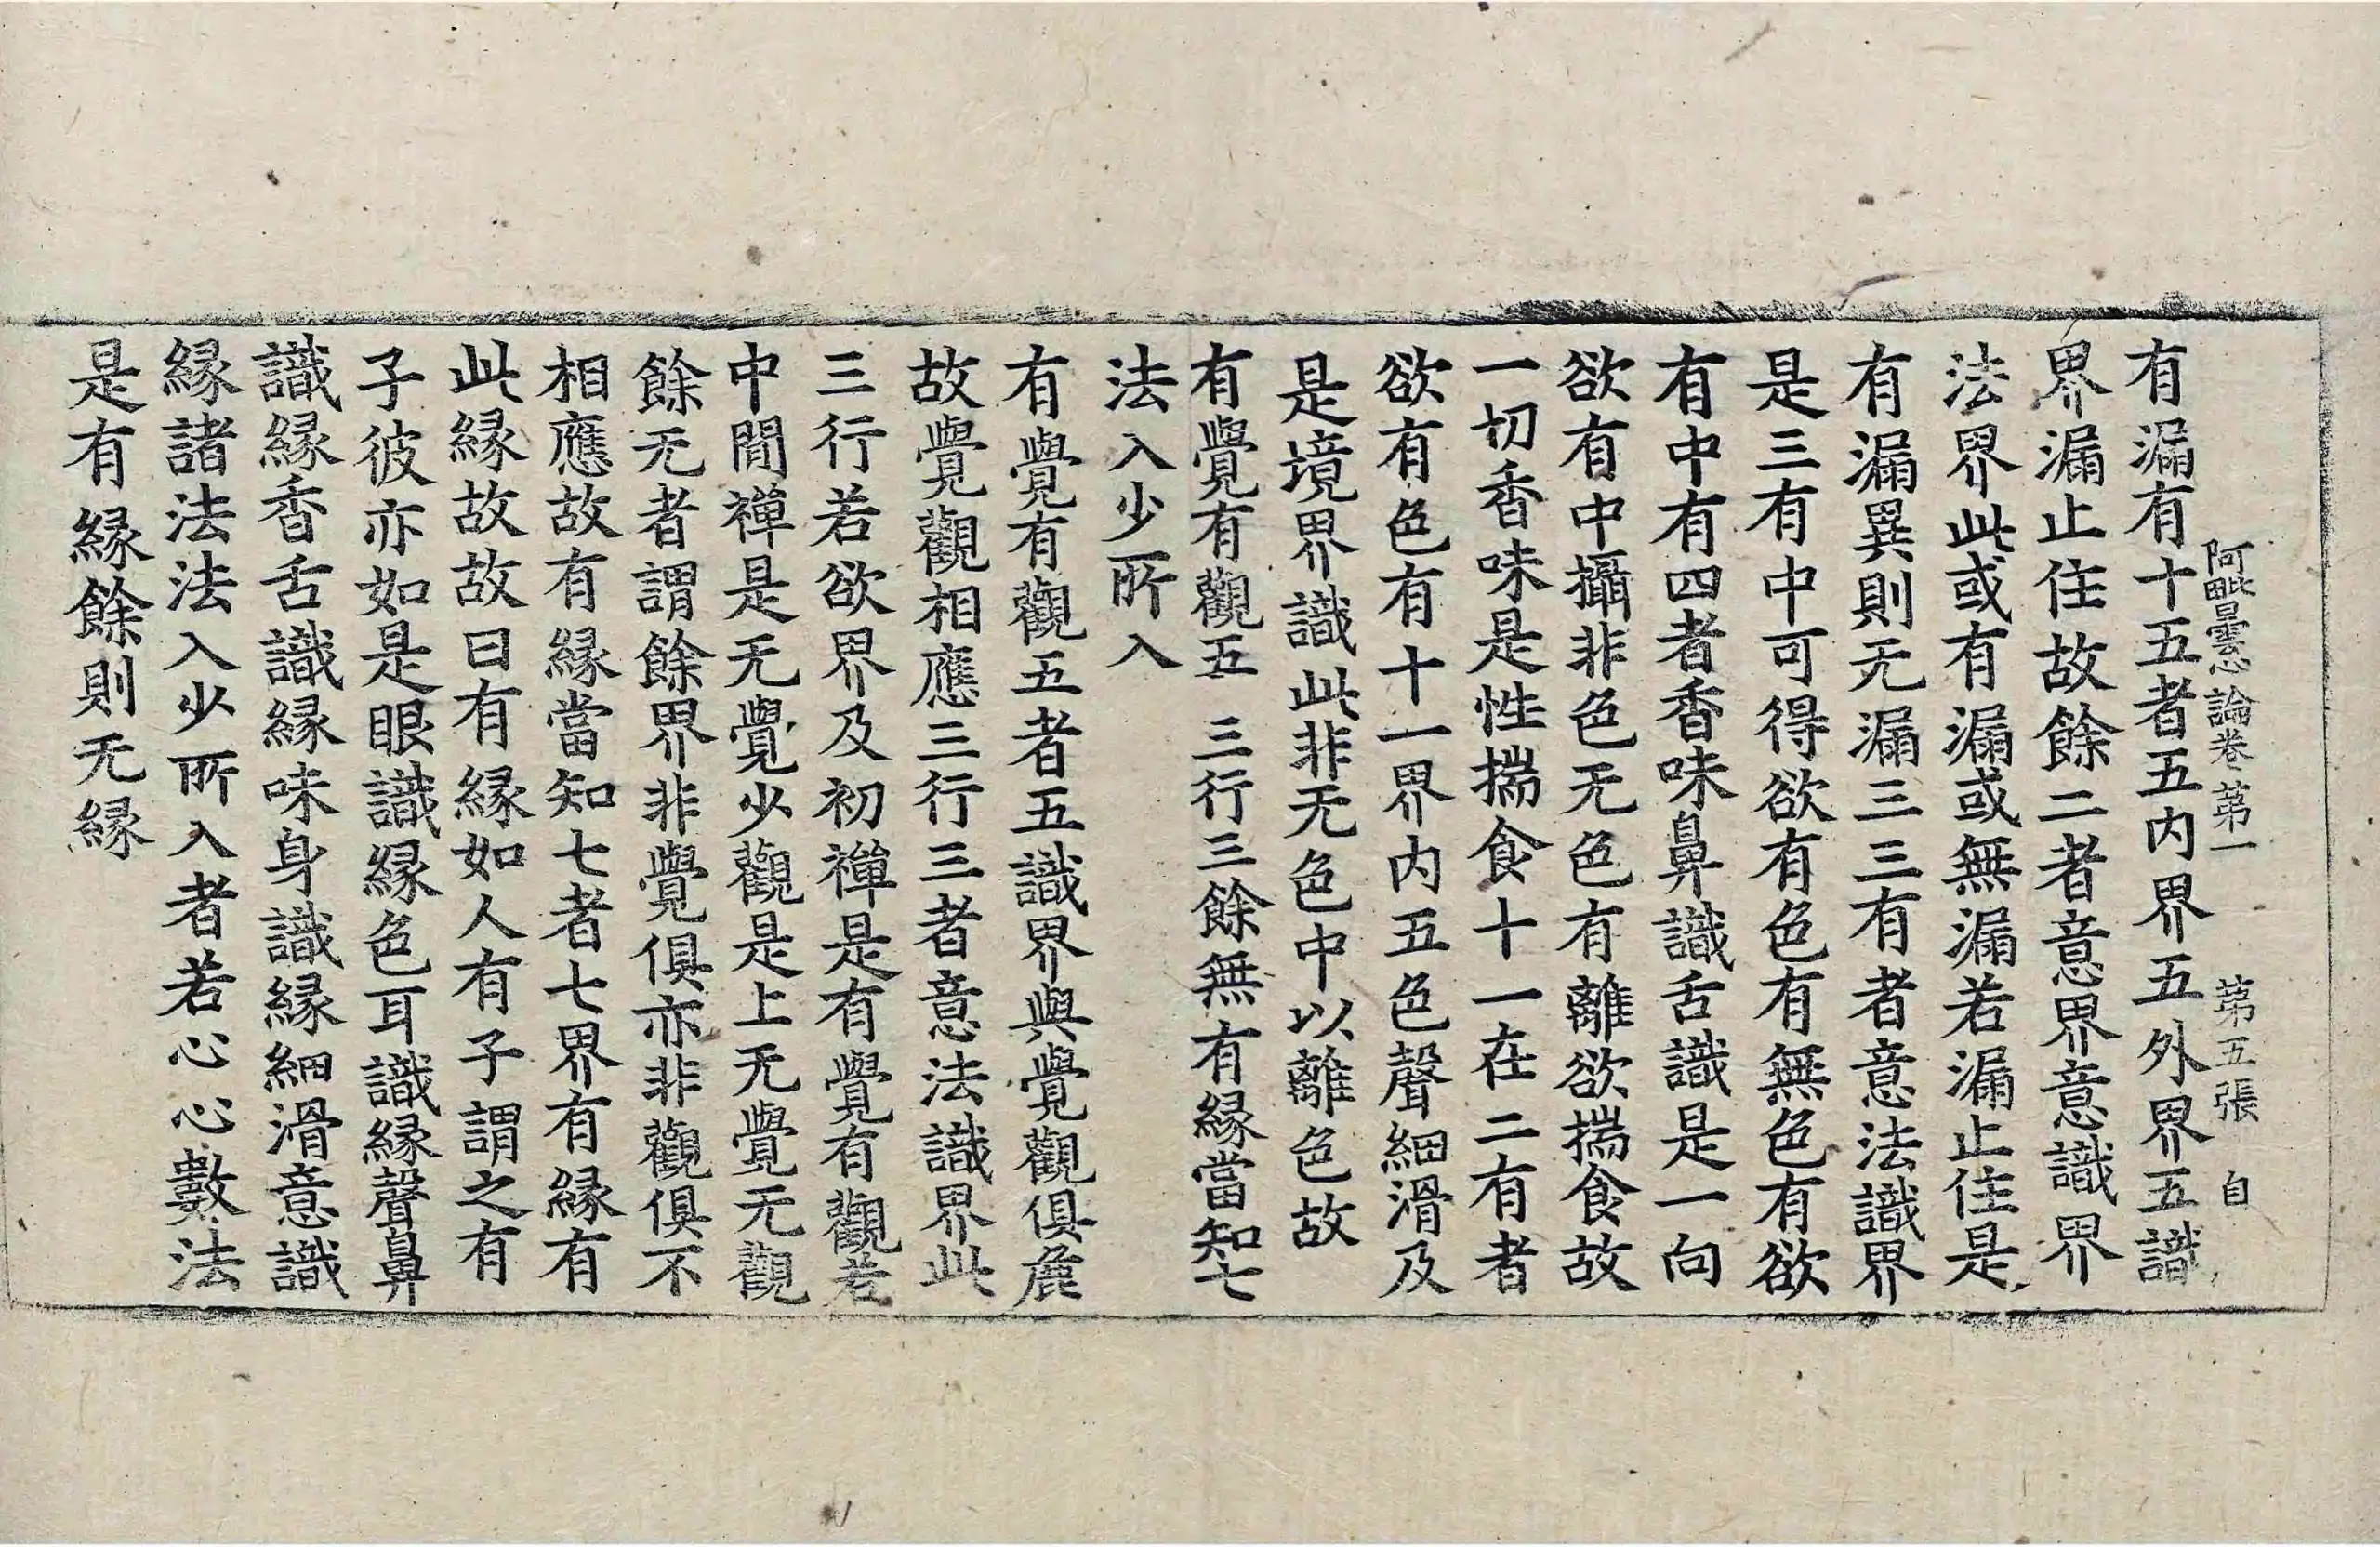 阿毗曇心論卷第一 第五張 自
有漏有十五者五内界五外界五識
界漏止住故餘二者意界意識界
法界此或有漏或無漏若漏止住是
有漏異則无漏三三有者意法識界
是三有中可得欲有色有無色有欲
有中有四者香味鼻識舌識是一向
欲有中攝非色无色有離欲揣食故
一切香味是性揣食十一在二有者
欲有色有十一界内五色聲細滑及
是境界識此非无色中以離色故
有覺有觀五 三行三餘無有縁當知七
法入少所入
有覺有觀五者五識界與覺觀俱麁
故覺觀相應三行三者意法識界此
三行若欲界及初禪是有覺有觀若
中間禪是无覺少觀是上无覺无觀
餘无者謂餘界非覺俱亦非觀俱不
相應故有縁當知七者七界有縁有
此縁故故曰有縁如人有子謂之有
子彼亦如是眼識縁色耳識縁聲鼻
識縁香舌識縁味身識縁細滑意識
縁諸法法入少所入者若心心數法
是有縁餘則无縁